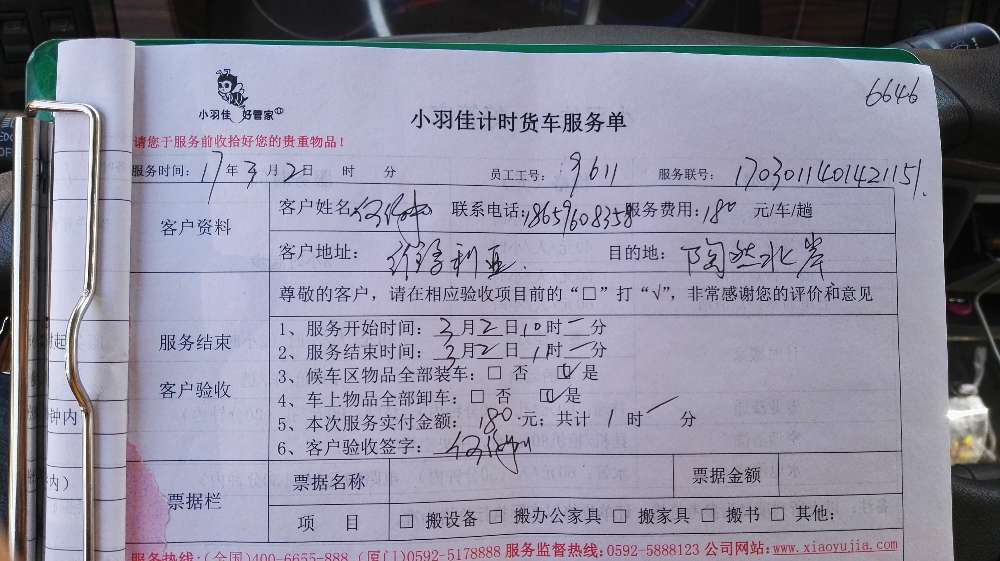 6646
小羽佳 好管家
小羽佳计时货车服务单
请您于服务前收拾好您的贵重物品！
服务时间：17年3月2日 时 分 员工工号：9611 服务联号：1703011401421151
客户资料
客户姓名 联系电话：18659608358 服务费用：180 元/车/趟
客户地址：维多利亚 目的地：陶然水岸
尊敬的客户，请在相应验收项目前的“□”打“√”，非常感谢您的评价和意见
服务结束
客户验收
1、服务开始时间：3月2日10时一分
2、服务结束时间：3月2日11时一分
3、候车区物品全部装车：□ 否 ☑ 是
4、车上物品全部卸车：□ 否 ☑ 是
5、本次服务实付金额：180元；共计 1 时 一 分
6、客户验收签字：
票据栏
票据名称 票据金额
项 目 □ 搬设备 □ 搬办公家具 □ 搬家具 □ 搬书 □ 其他：
服务热线：(全国)400-6655-888 (厦门)0592-5178888 服务监督热线：0592-5888123 公司网站：www.xiaoyujia.com